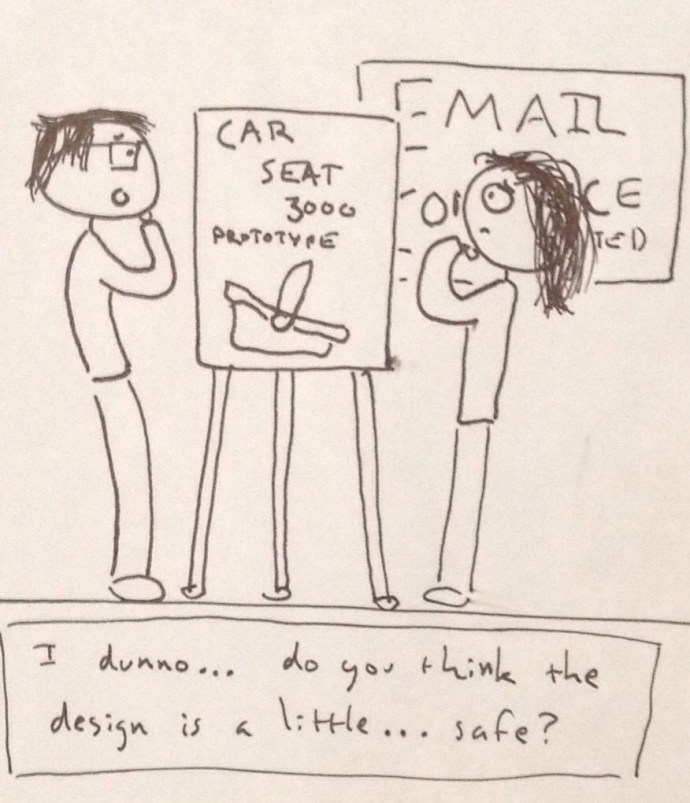 CAR
SEAT
3000
PROTOTYPE
EMAIL
CE
TED
I dunno... do you think the
design is a little... safe?